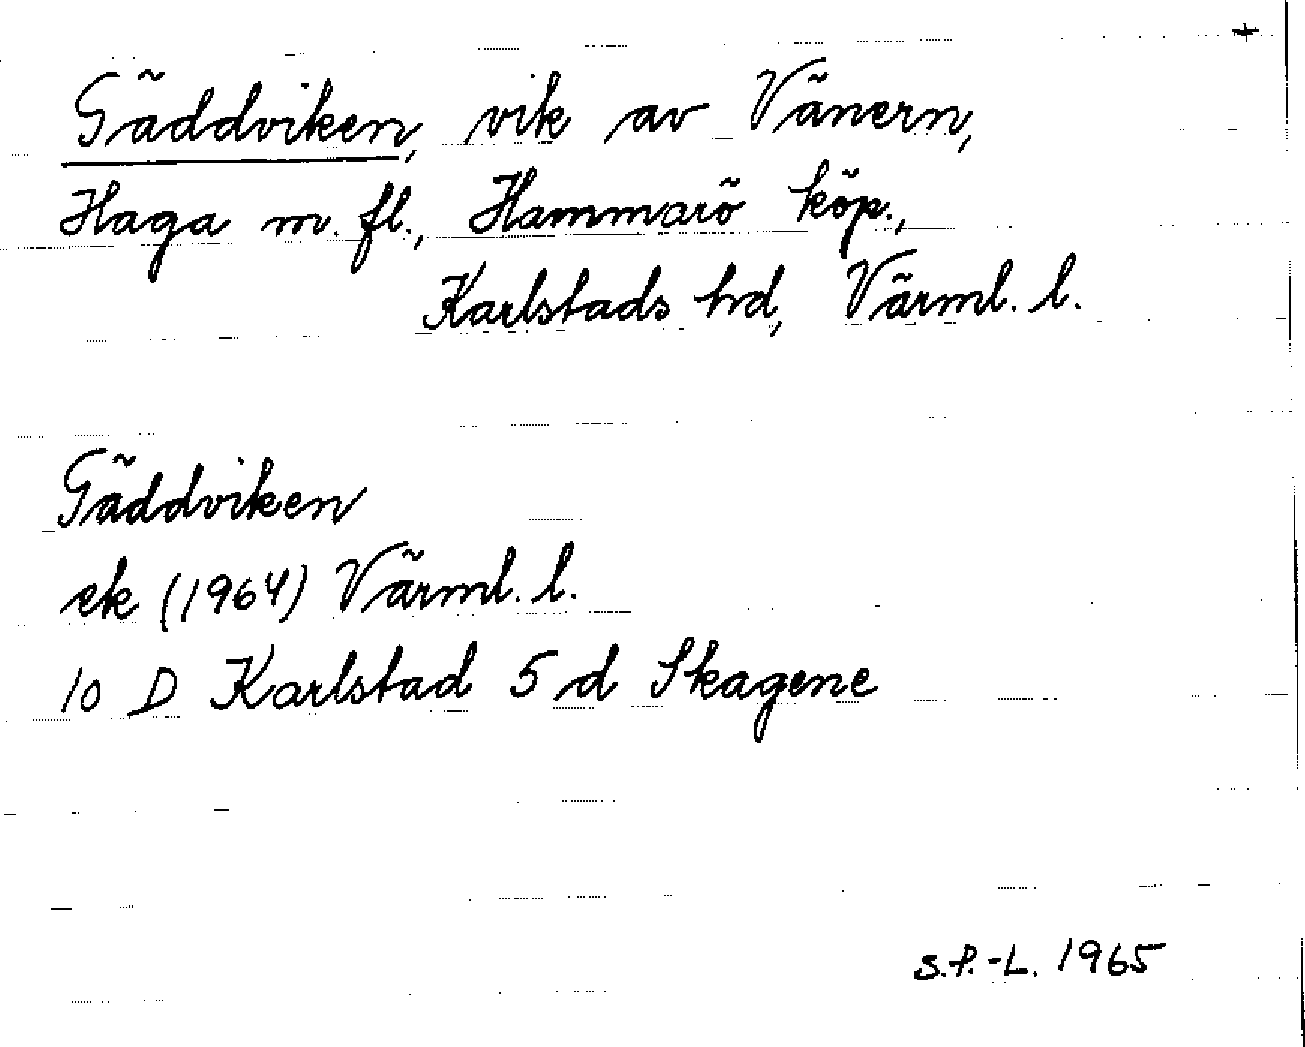 +
Gäddviken, vik av Vänern,
Haga m. fl., Hammarö köp.,
Karlstads hd, Värml. l.
Gäddviken
ek (1964) Värml. l.
10 D Karlstad 5 d Skagene
S.P.-L. 1965